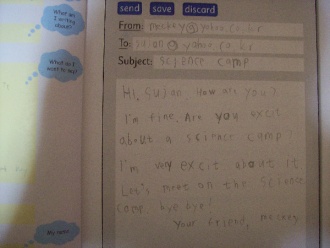 What am I writing about?
What do I want to say?
My name
send save discard
From: @yahoo.co.kr
To: Sujan@yahoo.co.kr
Subject: science camp
Hi, Sujan How are you?
I'm fine. Are you excit
about a science camp?
I'm very excit about it
Let's meet on the science
camp. bye bye!
Your friend,